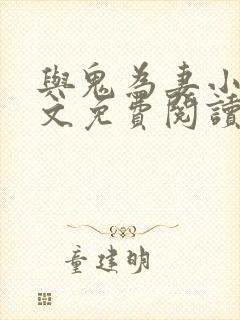 與鬼為妻小
文免費閱讀
童建明